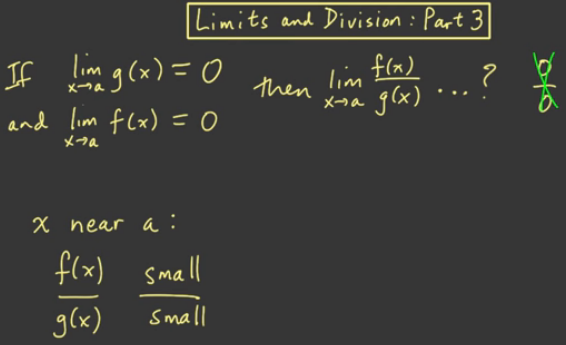 Limits and Division : Part 3
If lim x→a g(x) = 0 then lim x→a f(x)/g(x) ...? 0/0
and lim x→a f(x) = 0
x near a :
f(x) small
g(x) small